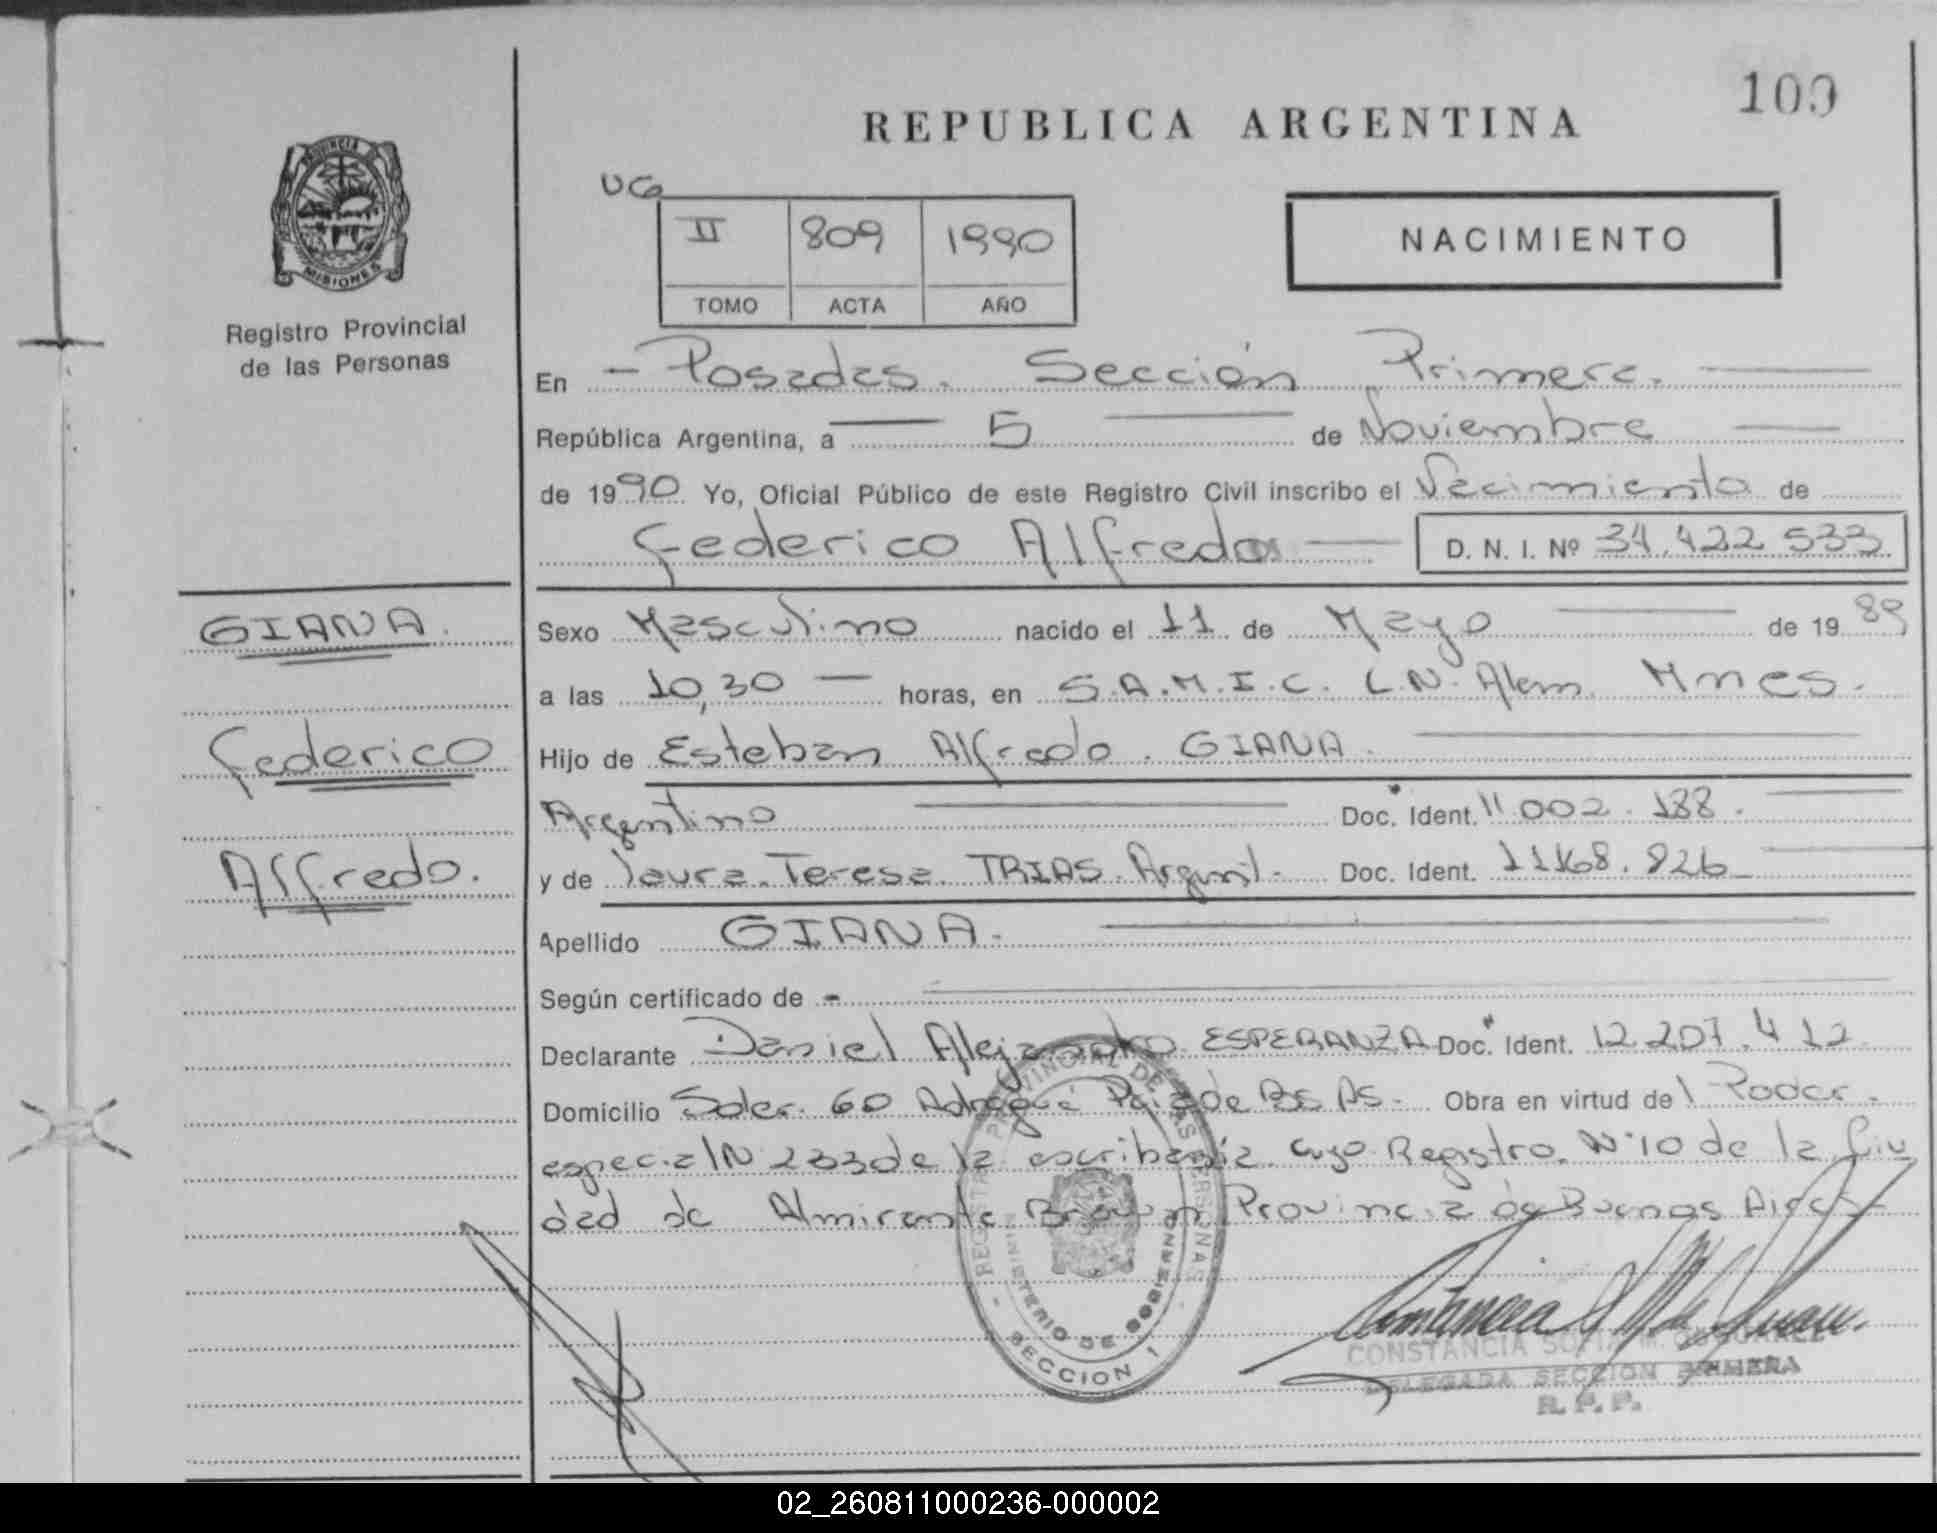 100
REPUBLICA ARGENTINA
UG
II 809 1990
TOMO ACTA AÑO
NACIMIENTO
PROVINCIA DE
MISIONES
Registro Provincial
de las Personas
En - Posadas. Sección Primera.
República Argentina, a 5 de Noviembre
de 1990 Yo, Oficial Público de este Registro Civil inscribo el Nacimiento de
Federico Alfredo D. N. I. Nº 34.422 533
GIANA.
Federico
Alfredo.
Sexo Masculino nacido el 11 de Mayo de 1989
a las 10,30 horas, en S.A.M.I.C. L.N. Alem. Mnes.
Hijo de Esteban Alfredo. GIANA.
Argentino Doc. Ident. 11 002.188.
y de laura. Teresa. TRIAS. Argent. Doc. Ident. 11168.826
Apellido GIANA.
Según certificado de -
Declarante Daniel Alejandro ESPERANZA Doc. Ident. 12.207.412
Domicilio Soler. 60 Adrogué de Bs As. Obra en virtud del Poder.
especial N 233 de la escribanía cuyo Registro. Nº 10 de la Ciu
dad de Almirante Brown Provincia de Buenos Aires
REGISTRO PROVINCIAL DE LAS PERSONAS
MINISTERIO DE GOBIERNO
- SECCION 1 -
CONSTANCIA
DELEGADA SECCION PRIMERA
R. P. P.
02_260811000236-000002